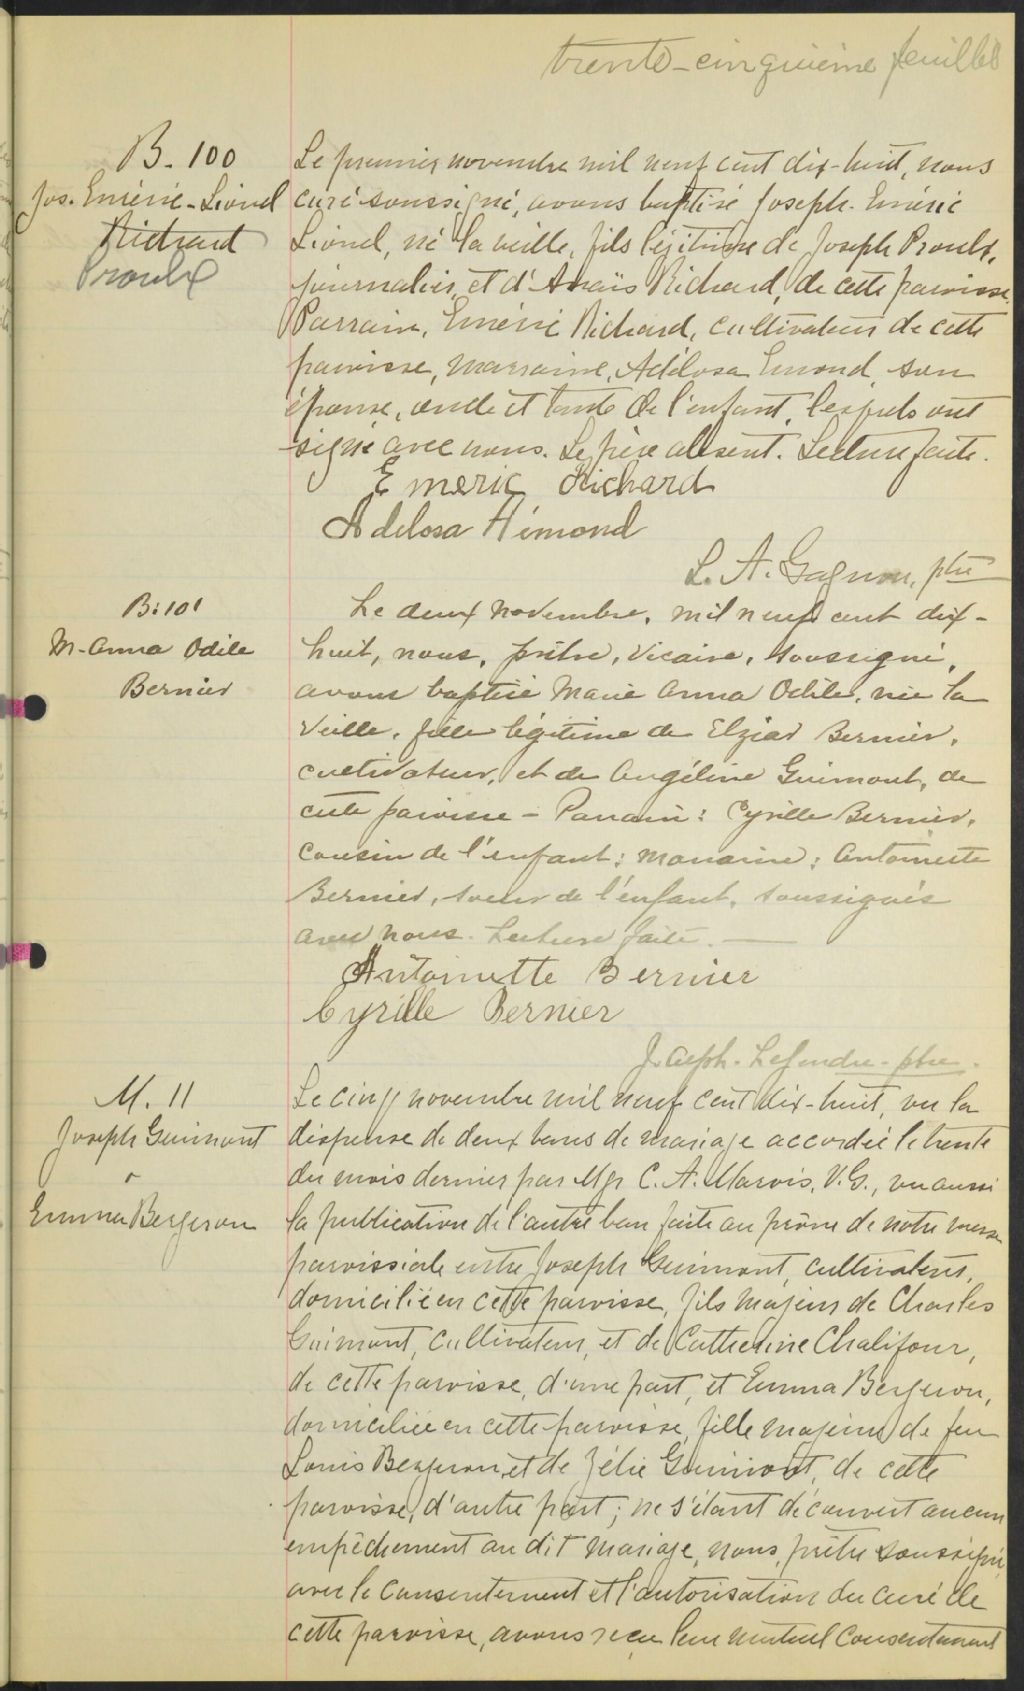 trente-cinquième feuillet
B. 100
Jos. Émérie-Lionel
Richard
Proulx
Le premier novembre mil neuf cent dix-huit, nous
curé soussigné, avons baptisé Joseph-Émérie
Lionel, né la veille, fils légitime de Joseph Proulx,
journalier, et d'Anaïs Richard, de cette paroisse.
Parrain, Émérie Richard, cultivateur de cette
paroisse, marraine, Adélosa Émond, son
épouse, oncle et tante de l'enfant, lesquels ont
signé avec nous. Le père absent. Lecture faite.
Emeric Richard
Adelosa Hémond
L. A. Gagnon, ptre
B. 101
M-Anna Odile
Bernier
Le deux novembre, mil neuf cent dix-
huit, nous, prêtre, vicaire, soussigné,
avons baptisé Marie Anna Odile, née la
veille, fille légitime de Elzéar Bernier,
cultivateur, et de Angéline Guimont, de
cette paroisse - Parrain: Cyrille Bernier,
cousin de l'enfant; marraine: Antoinette
Bernier, soeur de l'enfant, soussignés
avec nous. Lecture faite.
Antoinette Bernier
Cyrille Bernier
Joseph. Legendre - ptre.
M. 11
Joseph Guimont
&
Emma Bergeron
Le cinq novembre mil neuf cent dix-huit, vu la
dispense de deux bans de mariage accordée le trente
du mois dernier par Mgr C. A. Marois, V.G., vu aussi
la publication de l'autre ban faite au prône de notre messe
paroissiale entre Joseph Guimont, cultivateur,
domicilié en cette paroisse, fils majeur de Charles
Guimont, cultivateur, et de Catherine Chalifour,
de cette paroisse, d'une part, et Emma Bergeron,
domiciliée en cette paroisse, fille majeure de feu
Louis Bergeron et de Zélie Guimont, de cette
paroisse, d'autre part; ne s'étant découvert aucun
empêchement au dit mariage, nous, prêtre soussigné
avec le consentement et l'autorisation du curé de
cette paroisse, avons reçu leur mutuel consentement